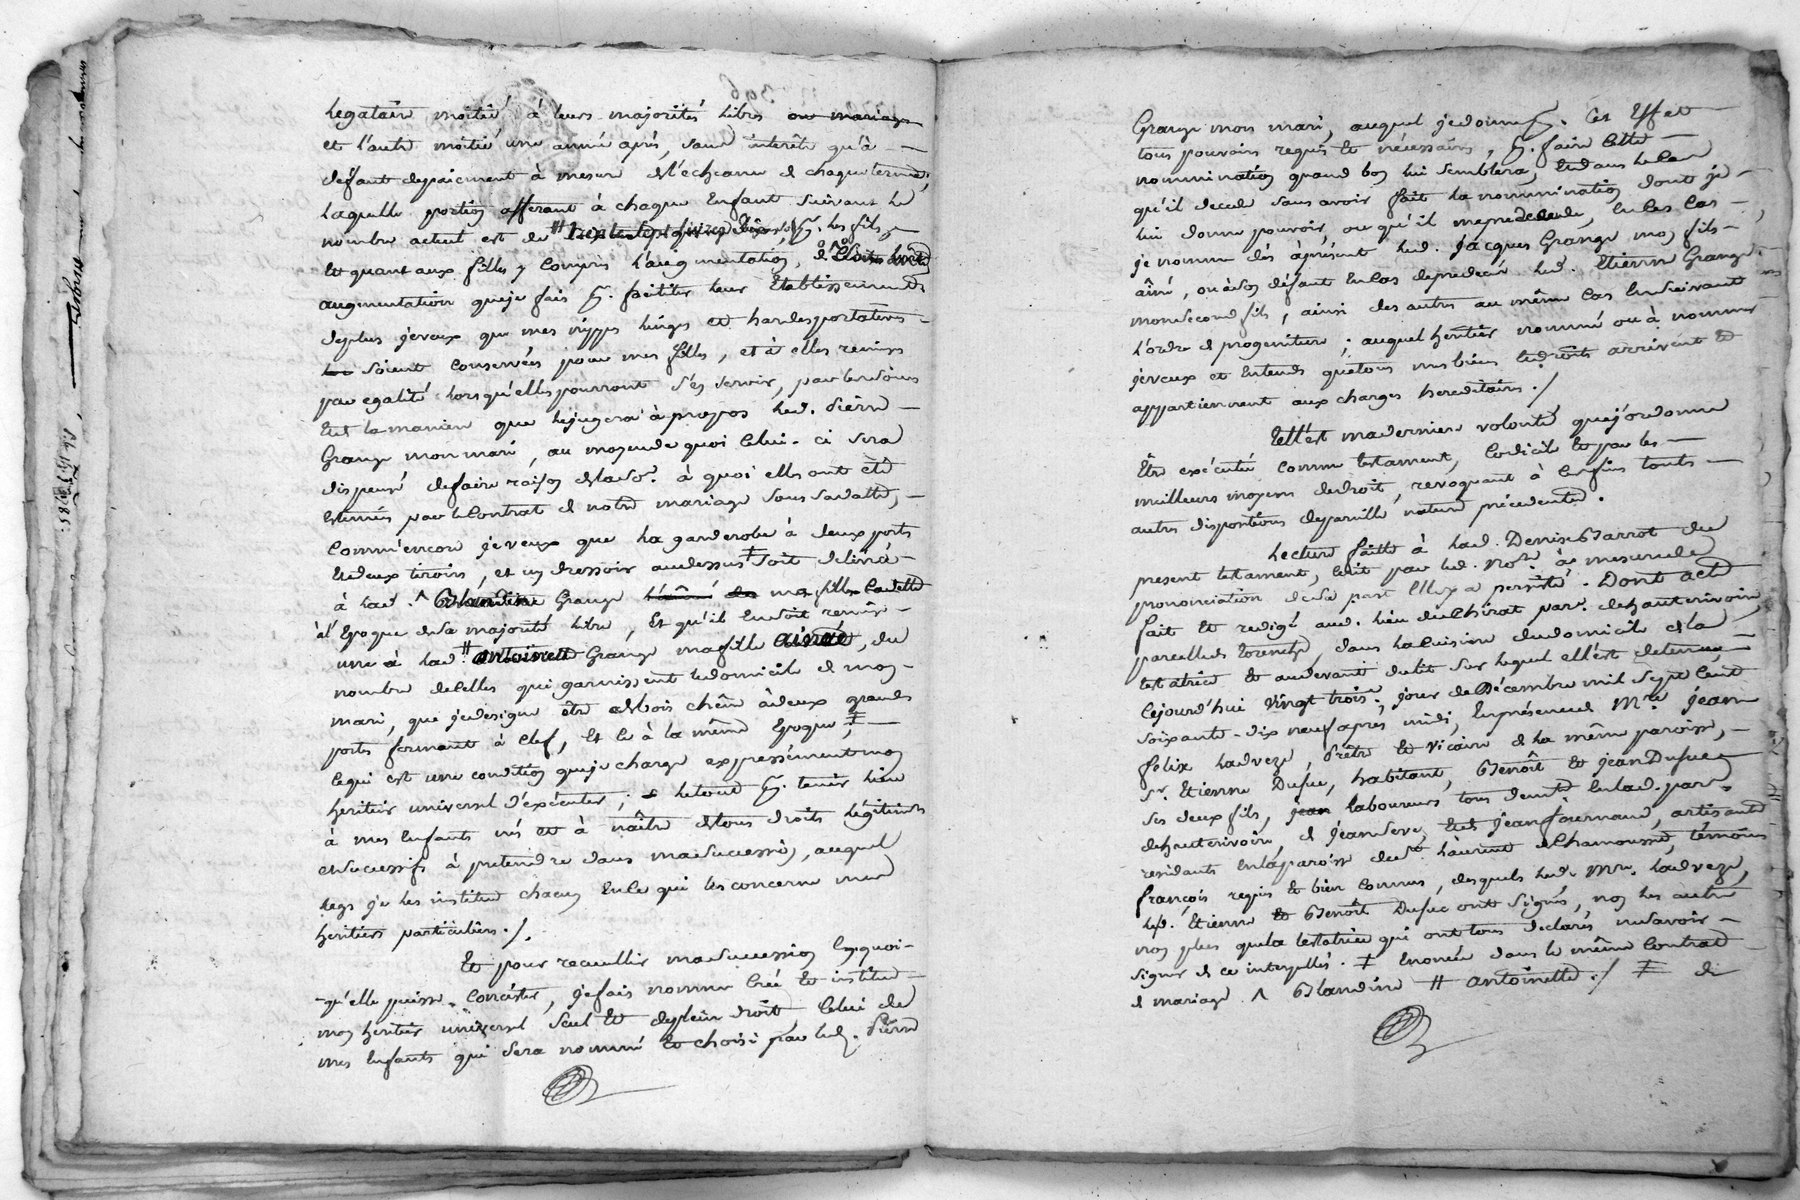 Legataire moitié à leurs majorités libres ou mariage
et l'autre moitié une année aprés, sans interêts qu'à
défaut depaiement à mesure de l'échéance de chaque terme,
Laquelle portion afferant à chaque Enfant suivant le
nombre actuel est de , pr. les fils
Et quant aux filles y compris l'augmentation, de
augmentation queje fais pr. faciliter leur Etablissement
deplus jeveux que mes nippes linges et hardes portatives
soient conservées pour mes filles, et à elles remises
par egalité lorsqu'elles pourront s'en servir, par
Et la maniere que lejugera à propos led. Pierre
Grange mon mari, au moyen de quoi celui-ci sera
dispensé defaire raison dela à quoi elles ont été
Estimées par le Contrat de notre mariage sous sa datte,
Comm'encore jeveux que la garderobe à deux ports
Et deux tiroirs, et un dressoir audessus ‡ soit délivré
à lad. ^ Grange ma fille Cadette
à l'Epoque desa majorité libre, Et qu'il Ensoit remis
une à lad. # Grange mafille ainée, du
nombre decelles qui garnissent ledomicile de mon
mari, que jedesigne être de bois chêne àdeux grands
ports fermant à clef, Et ce à la même Epoque, ‡
cequi est une condition queje charge expressément mon
heritier universel d'exécuter; le tout pr. tenir lieu
à mes Enfants nés et à naître detous droits légitimes
et successifs à pretendre dans masuccession, auquel
legs je les institue chacun Ence qui les concerne mes
heritiers particuliers./.
Et pour recueillir masuccession En quoi-
-qu'elle puisse concister, jefais nomme Crée Et institue
mon heritier universel seul Et deplein droit, Celui de
mes Enfants qui sera nommé Et choisi par led. Pierre
Grange mon mari, auquel jedonne pr. Cet Effet
tous pouvoirs requis Et nécessaires, pr. faire Cette
nommination quand bon lui semblera, Et dans le cas
qu'il decede sans avoir fait la nommination dont je
lui donne pouvoir, ou qu'il meprededede, En ces cas
je nomme dés àprésent led. Jacques Grange mon fils
aîné, ou àson défaut Encas deprédecès led. Etienne Grange
monsecond fils, ainsi des autres au même cas Ensuivant
l'ordre de progeniture; auquel héritier nommé ou à nommer
jeveux et Entends quetous mes biens Et droits arrivent Et
appartiennent aux charges hereditaires./
Tell'est maderniere volonté quej'ordonne
Être exécutée comme testament, Codicile Et par les
meilleurs moyens dedroit, revoquant à Ces fins touts
autres dispositions depareille nature précédentes.
Lecture faitte à lad. Denise Barrot du
present testament, Ecrit par led. Nore. à mesure de
prononciation desa part Elle y a persisté. Dont acte
fait Et redigé aud. lieu du Chirat par. dehauterivoire
parcelle de , dans la cuisine dudomicile de la
testatrice Et audevant dulit sur lequel ell'est detenue
Cejourd'hui vingt trois. jour de Décembre mil sept Cent
soixante-dix neuf après midi, En présence de Mre. Jean
félix Ladveze, Prêtre Et Vicaire de la même paroisse,
Sr. Etienne Dufuc, habitant, Benoît Et Jean Dufuc
ses deux fils, laboureurs tous deurts. En lad. par.
dehauterivoire, de Jean Seve, Et de Jean fournand, artisants
residants En laparoisse de St. Laurent de Chamousset, témoins
françois requis Et bien Connus, desquels led. Mre. Ladveze,
led. Etienne Et Benoît Dufuc ont signés, non les autres
non plus quela testatrice qui ont tous declarés nesavoir
signer de ce interpellés. ‡ Enoncée dans le même Contrat
de mariage. ^ Blandine # antoinette./ ‡ de